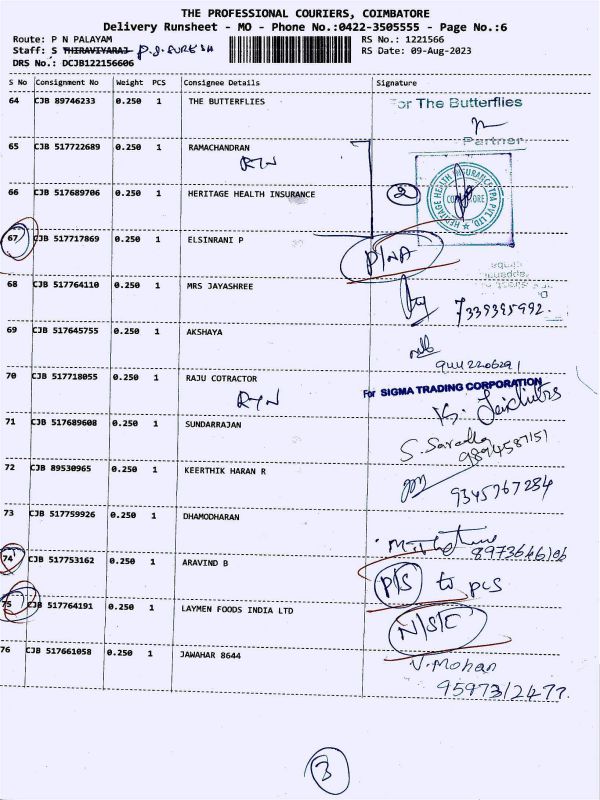 THE PROFESSIONAL COURIERS, COIMBATORE
Delivery Runsheet - MO - Phone No.:0422-3505555 - Page No.:6
Route: P N PALAYAM RS No.: 1221566
Staff: S THIRAVIYARAJ P.S. SURESH RS Date: 09-Aug-2023
DRS No.: DCJB122156606
S No Consignment No Weight PCS Consignee Details Signature
64 CJB 89746233 0.250 1 THE BUTTERFLIES
For The Butterflies
Partner
65 CJB 517722689 0.250 1 RAMACHANDRAN
66 CJB 517689706 0.250 1 HERITAGE HEALTH INSURANCE 2
HERITAGE HEALTH INSURANCE TPA PVT LTD
67 CJB 517717869 0.250 1 ELSINRANI P
P/NA
68 CJB 517764110 0.250 1 MRS JAYASHREE
7339395992.
69 CJB 517645755 0.250 1 AKSHAYA
9442206291
70 CJB 517718055 0.250 1 RAJU COTRACTOR
For SIGMA TRADING CORPORATION
71 CJB 517689608 0.250 1 SUNDARRAJAN
9894587151
72 CJB 89530965 0.250 1 KEERTHIK HARAN R
9345767284
73 CJB 517759926 0.250 1 DHAMODHARAN
74 CJB 517753162 0.250 1 ARAVIND B
P/S to pcs
75 CJB 517764191 0.250 1 LAYMEN FOODS INDIA LTD
N/S/C
76 CJB 517661058 0.250 1 JAWAHAR 8644
V. Mohan
9597312477.
3